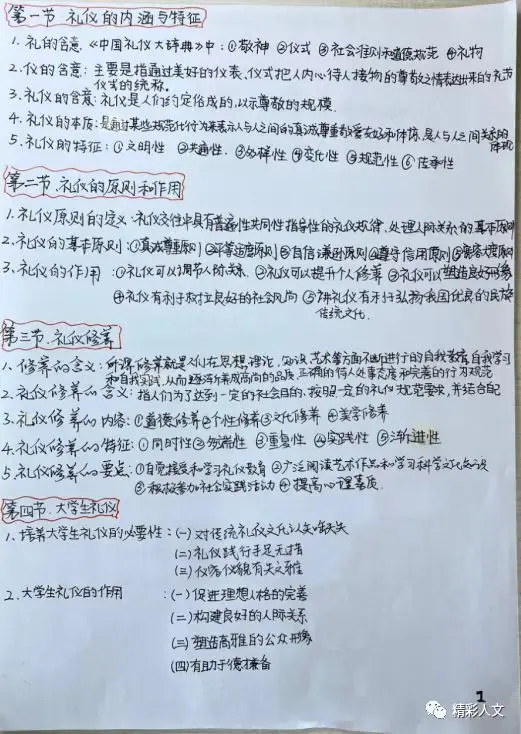 第一节 礼仪的内涵与特征
1. 礼的含意.《中国礼仪大辞典》中:①敬神 ②仪式 ③社会准则和道德规范 ④礼物
2. 仪的含意:主要是指通过美好的仪表、仪式把人内心待人接物的尊敬之情表达出来的礼节
仪式的统称.
3. 礼仪的含意:礼仪是人们约定俗成的,以示尊敬的规模.
4. 礼仪的本质:是通过某些规范化行为来表示人与人之间的真诚尊重敬爱友好和体谅,是人与人之间关系的体现
5. 礼仪的特征:①文明性 ②共通性. ③多样性 ④变化性 ⑤规范性 ⑥传承性
第二节.礼仪的原则和作用
1. 礼仪原则的定义:礼仪交往中具有普遍性共同性指导性的礼仪规律,处理人际关系的基本原则
2. 礼仪的基本原则:①真诚尊重原则②平等适度原则③自信谦逊原则④遵守信用原则⑤宽容大度原则
3. 礼仪的作用:①礼仪可以调节人际关系.②礼仪可以提升个人修养 ③礼仪可以塑造良好形象
④礼仪有利于树立良好的社会风尚 ⑤讲礼仪有利于弘扬我国优良的民族
传统文化.
第三节.礼仪修养
1. 修养的含义:所谓修养就是人们在思想,理论,知识,艺术等方面不断进行的自我教育,自我学习
和自我实践,从而逐渐养成高尚的品质,正确的待人处事态度和完善的行为规范
2. 礼仪修养的含义:指人们为了达到一定的社会目的,按照一定的礼仪规范要求,并结合
3. 礼仪修养的内容:①道德修养②个性修养③文化修养 ④美学修养
4. 礼仪修养的特征:①同时性②多端性 ③重复性 ④实践性 ⑤渐进性
5. 礼仪修养的要点:①自觉接受和学习礼仪教育 ②广泛阅读艺术作品和学习科学文化知识
③积极参加社公实践活动 ④提高心理素质.
第四节.大学生礼仪
1. 培养大学生礼仪的必要性:(一)对传统礼仪文化认知缺失
(二)礼仪践行手足无措
(三)仪容仪貌有失文雅
2. 大学生礼仪的作用 :(一)促进理想人格的完善
(二)构建良好的人际关系
(三)塑造高雅的公众形象
(四)有助于德才兼备
1
精彩人文